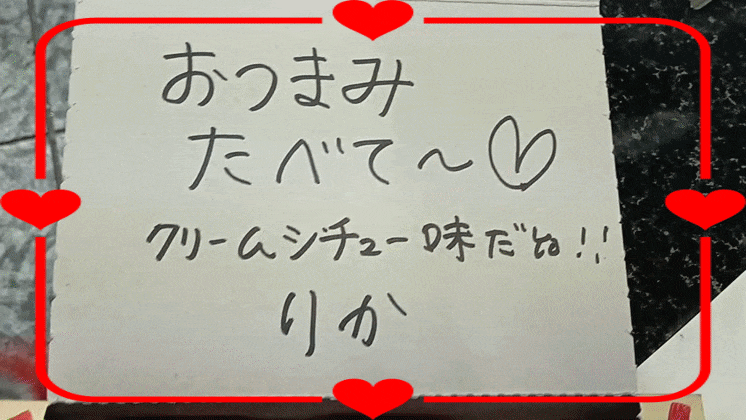 おつまみ
たべて〜♡
クリームシチュー味だね!!
りか